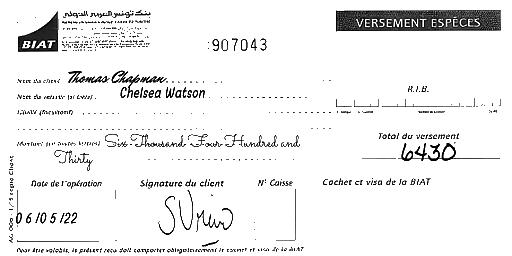 بنك تونس العربي الدولي
BIAT
VERSEMENT ESPÈCES
907043
Nom du client Thomas Chapman
Nom du verseur (si tiers) Chelsea Watson
R.I.B.
Libellé (facultatif)
Montant (en toutes lettres) Six-Thousand Four-Hundred and
Thirty
Total du versement
6430
Date de l'opération Signature du client N° Caisse Cachet et visa de la BIAT
06/05/22
Pour être valable, le présent reçu doit comporter obligatoirement le cachet et visa de la BIAT